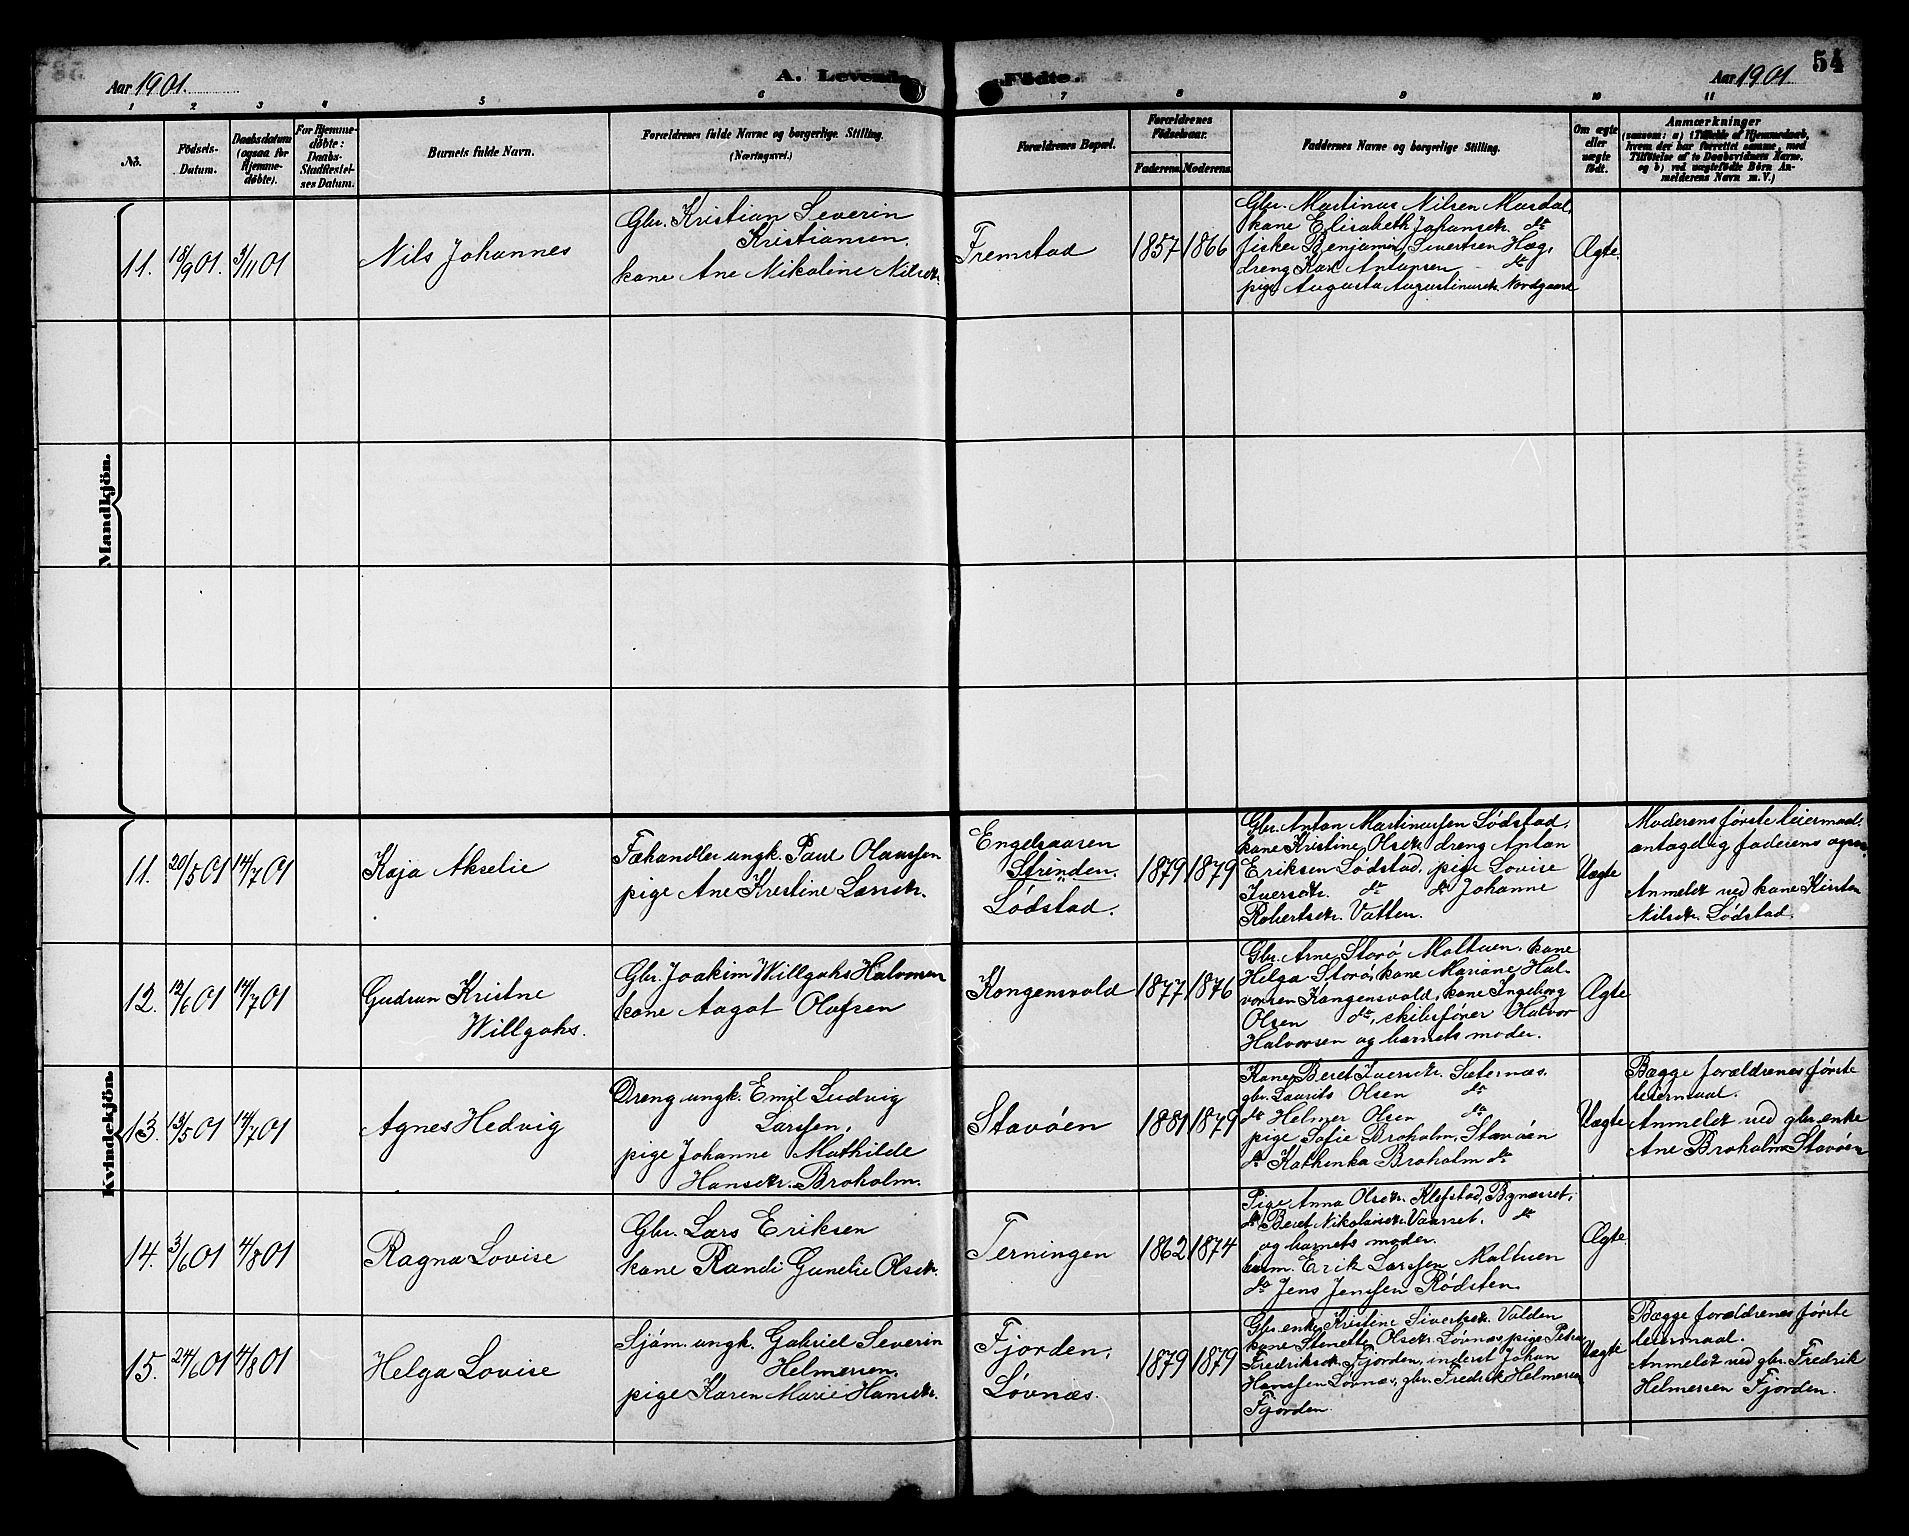 54
Aar 1901.
A. Levende
Födte.
Aar 1901
1 2 3 4 5 6 7 8 9 10 11
No.
Födsels-
Datum.
Daabsdatum
(ogsaa for
Hjemme-
døbte).
For Hjemme-
døbte:
Daabs-
Stadfæstel-
ses Datum.
Barnets fulde Navn.
Forældrenes fulde Navne og borgerlige Stilling.
(Næringsvei.)
Forældrenes Bopæl.
Forældrenes
Födselsaar.
Faderens. Moderens.
Faddernes Navne og borgerlige Stilling.
Om ægte
eller
uægte
født.
Anmærkninger
(saasom: a) i Tilfælde af Hjemmedaab,
hvem der har forrettet samme, med
Tilföielse af to Daabsvidners Navne,
og b) ved uægtefødte Börn An-
melderens Navn m. V.)
Mandkjön.
11. 18/9 01. 3/11 01
Nils Johannes
Gbr. Kristian Severin
Kristiansen.
kone Ane Nikoline Nilsdtr.
Fremstad
1857 1866
Gbr. Martinus Nilsen Mardal.
kone Elisabeth Johansdtr. do
fisker Benjamin Sivertsen Hæg,
dreng Karl Antonsen do
pige Augusta Augustinusdtr. Nordgaard
Ægte.
Kvindekjön.
11. 20/5 01 14/7 01
Kaja Akselie
Fæhandler ungk. Paul Olaussen
pige Ane Kristine Larsdtr.
Engelsaasen
Strinden.
Lødstad.
1879 1879
Gbr. Anton Martinussen Lødstad.
kone Kristine Olsdtr. dreng Anton
Eriksen Lødstad, pige Lovise
Iversdtr. do do Johanne
Robertsdtr. Vatten.
Uægte
Moderens første leiermaal.
antagelig faderens ogsaa.
Anmeldt ved kone Kirsten
Nilsdtr. Lødstad.
12. 12/6 01 14/7 01
Gudrun Kristne
Willgohs.
Gbr. Joakim Willgohs Halvorsen
kone Aagot Olafsen
Kongensvold
1877 1876
Gbr. Arne Storø Moltuen, kone
Helga Storø, kone Mariane Hal-
vorsen Kongensvold, kone Ingeborg
Olsen do, skibsfører Halvor
Halvorsen og barnets moder.
Ægte
13. 13/5 01 14/7 01
Agnes Hedvig
Dreng ungk. Emil Ludvig
Larsen,
pige Johanne Mathilde
Hansdtr. Broholm.
Stavøen
1881 1879
Kone Beret Iversdtr. Sæternæs.
gbr. Laurits Olsen do
do Helmer Olsen do
pige Sofie Broholm, Stavøen
do Kathinka Broholm do
Uægte
Begge forældrenes første
leiermaal.
Anmeldt ved gbr.enke
Ane Broholm Stavøen
14. 3/6 01 4/8 01
Ragna Lovise
Gbr. Lars Eriksen
kone Randi Gunelie Olsdtr.
Terningen
1862 1874
Pige Anna Olsdtr. Klefstad, Bynesset,
do Beret Nikolaisdtr. Vaarset. do
og barnets moder.
husm. Erik Larssen Moltuen
do Jens Jenssen Rødsten.
Ægte
15. 24/6 01 4/8 01
Helga Lovise
Sjøm. ungk. Gabriel Severin
Helmersen.
pige Karen Marie Hansdtr.
Fjorden.
Løvnæs.
1879 1879
Gbr.enke Kristine Sivertsdtr. Valden
kone Stenette Olsdtr. Løvnæs, pige Petra
Fredriksdtr. Fjorden, inderst Johan
Hanssen Løvnæs, gbr. Fredrik Helmersen
Fjorden.
Uægte
Begge forældrenes første
leiermaal.
Anmeldt ved gbr. Fredrik
Helmersen Fjorden.